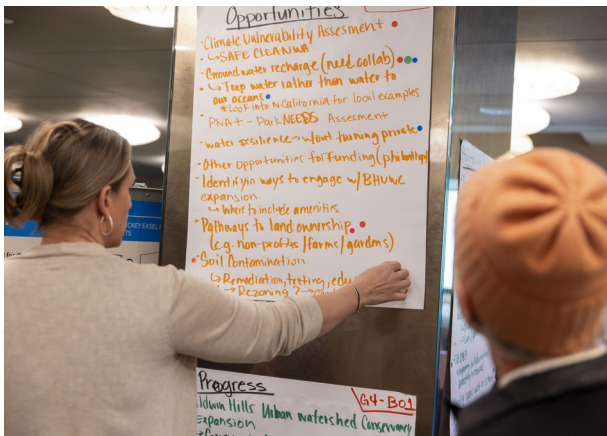 Opportunities
• Climate Vulnerability Assesment
↳ SAFE CLEAN WA
• Groundwater recharge (need collab)
↳ Trap water rather than water to
our oceans
* Look into N. California for local examples
• PNA+ - Park NEEDS Assesment
• water resilience → w/out turning private
• Other opportunities for Funding (philanthropy)
• Identifyin ways to engage w/ BHUWC
expansion
↳ Where to include amenities
• Pathways to land ownership
(e.g. non-profits / farms / gardens)
• Soil Contamination
↳ Remediation, testing, edu
→ Rezoning ? →
Progress
G4-B01
ldwin Hills Urban watershed Conservancy
Expansion